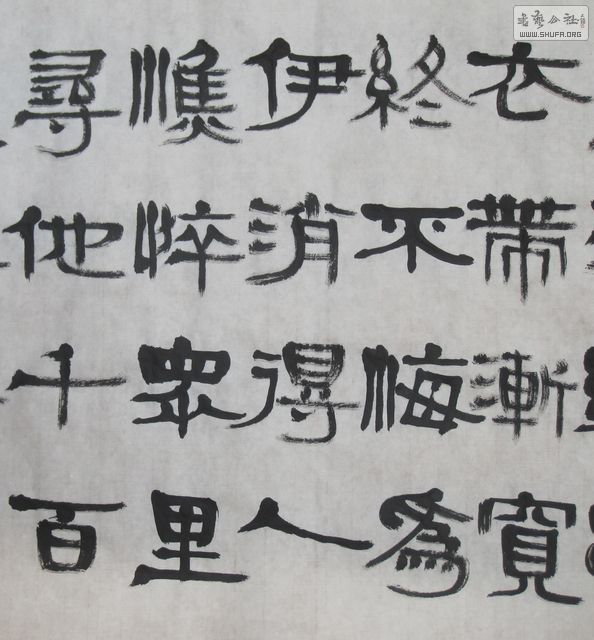 衣帶漸寬
終不悔為
伊消得人
憔悴眾里
尋他千百
書藝公社
WWW.SHUFA.ORG